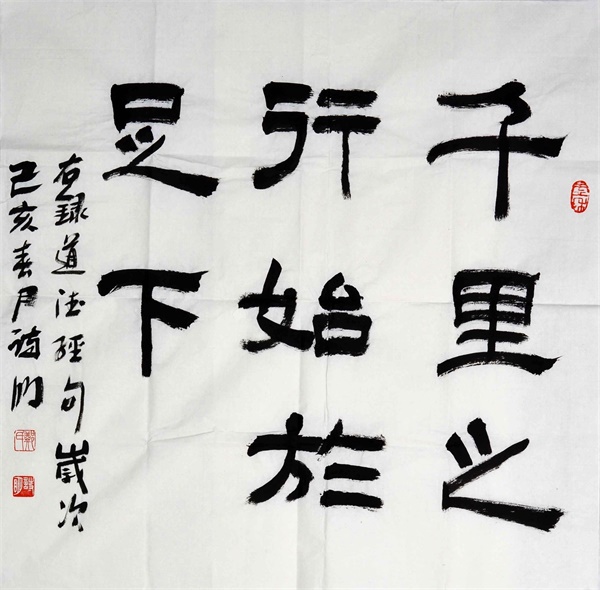 千里之
行始於
足下
右録道德經句歲次
己亥春月詩明